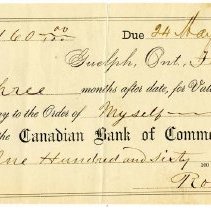 160 00/100 Due 24 May
Guelph, Ont.,
Three months after date, for Val
y to the Order of Myself
the Canadian Bank of Comme
One Hundred and Sixty
Ro